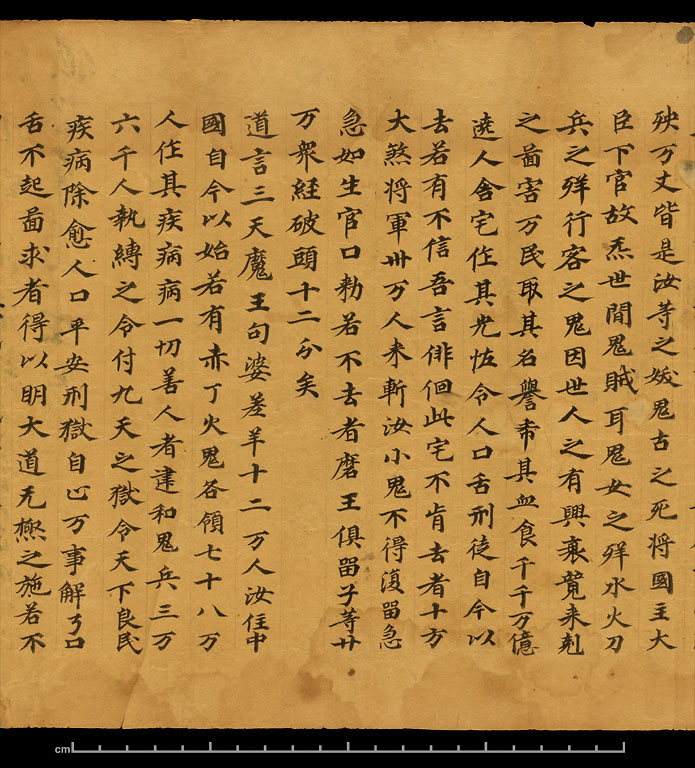 殃万丈皆是汝等之妖鬼古之死将國主大
臣下官故炁世間鬼賊耳鬼女之殃水火刀
兵之殃行客之鬼因世人之有興衰競来剋
之啚害万民取其名譽希其血食千千万億
遶人舍宅作其光恠令人口舌刑徒自今以
去若有不信吾言俳佪此宅不肯去者十方
大煞将軍卅万人来斬汝小鬼不得復留急
急如生官口勑若不去者磨王俱留子等廿
万衆経破頭十二分矣
道言三天魔王句婆差羊十二万人汝住中
國自今以始若有赤丁火鬼各領七十八万
人住其疾病病一切善人者建和鬼兵三万
六千人執縛之令付九天之獄令天下良民
疾病除愈人口平安刑獄自止万事解了口
舌不起啚求者得以明大道无極之施若不